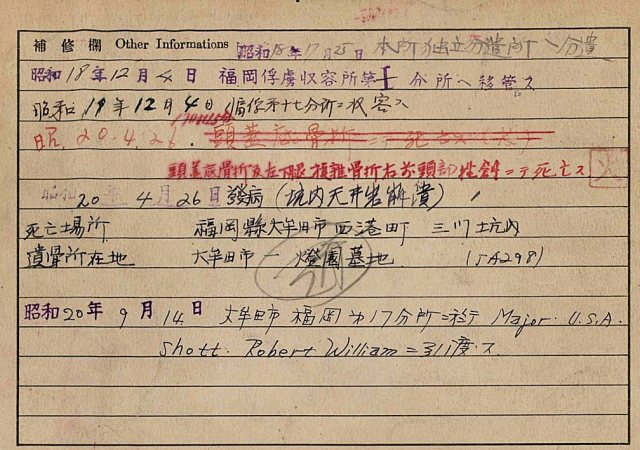 補修欄 Other Informations 昭和18年 月25日 本所独立分遣所へ分遣
昭和18年12月 日 福岡俘虜収容所第 分所へ移管ス
昭和19年12月4日 福俘第十七分所ニ収容ス
昭 20.4.26. 頭蓋底骨折ニテ死亡ス
頭蓋底骨折及左下腿複雑骨折右前頭部挫創ニテ死亡ス
昭和20年4月26日發病(坑内天井岩崩潰)
死亡場所 福岡縣大牟田市西港町 三川坑内
遺骨所在地 大牟田市一 燈園墓地 (JA298)
昭和20年9月14日 大牟田市福岡第17分所ニ於テ Major. U.S.A.
Shott. Robert William ニ引渡ス